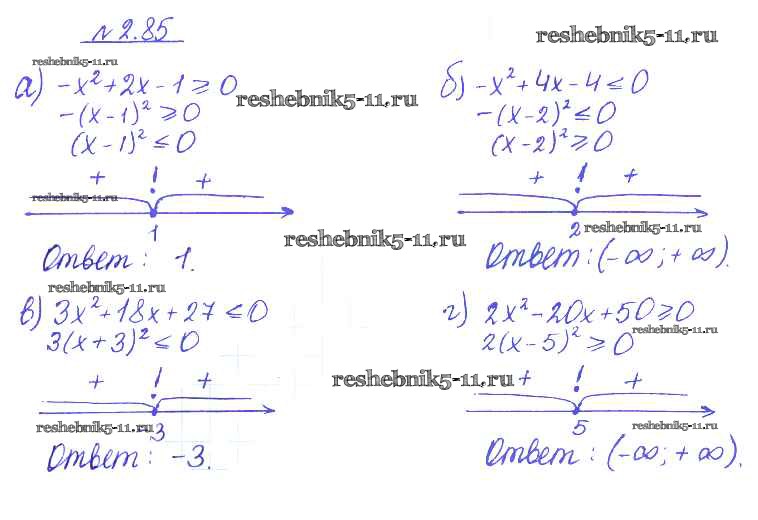 N 2.85
reshebnik5-11.ru
reshebnik5-11.ru
а) -x²+2x-1≥0
-(x-1)²≥0
(x-1)²≤0
reshebnik5-11.ru
+ ! +
reshebnik5-11.ru
1
Ответ: 1.
б) -x²+4x-4≤0
-(x-2)²≤0
(x-2)²≥0
+ ! +
2
reshebnik5-11.ru
reshebnik5-11.ru
Ответ: (-∞;+∞).
reshebnik5-11.ru
в) 3x²+18x+27≤0
3(x+3)²≤0
+ ! +
reshebnik5-11.ru
-3
Ответ: -3.
г) 2x²-20x+50≥0
reshebnik5-11.ru
2(x-5)²≥0
reshebnik5-11.ru
+ ! +
5
reshebnik5-11.ru
Ответ: (-∞;+∞).